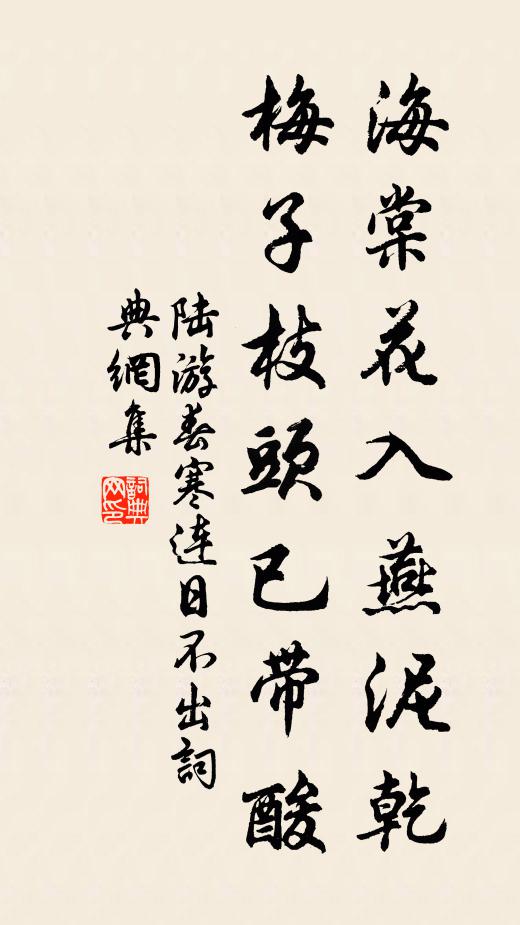 海棠花入燕泥乾
梅子枝頭已帶酸
陸游春寒連日不出詞
典網集
詞典
网印